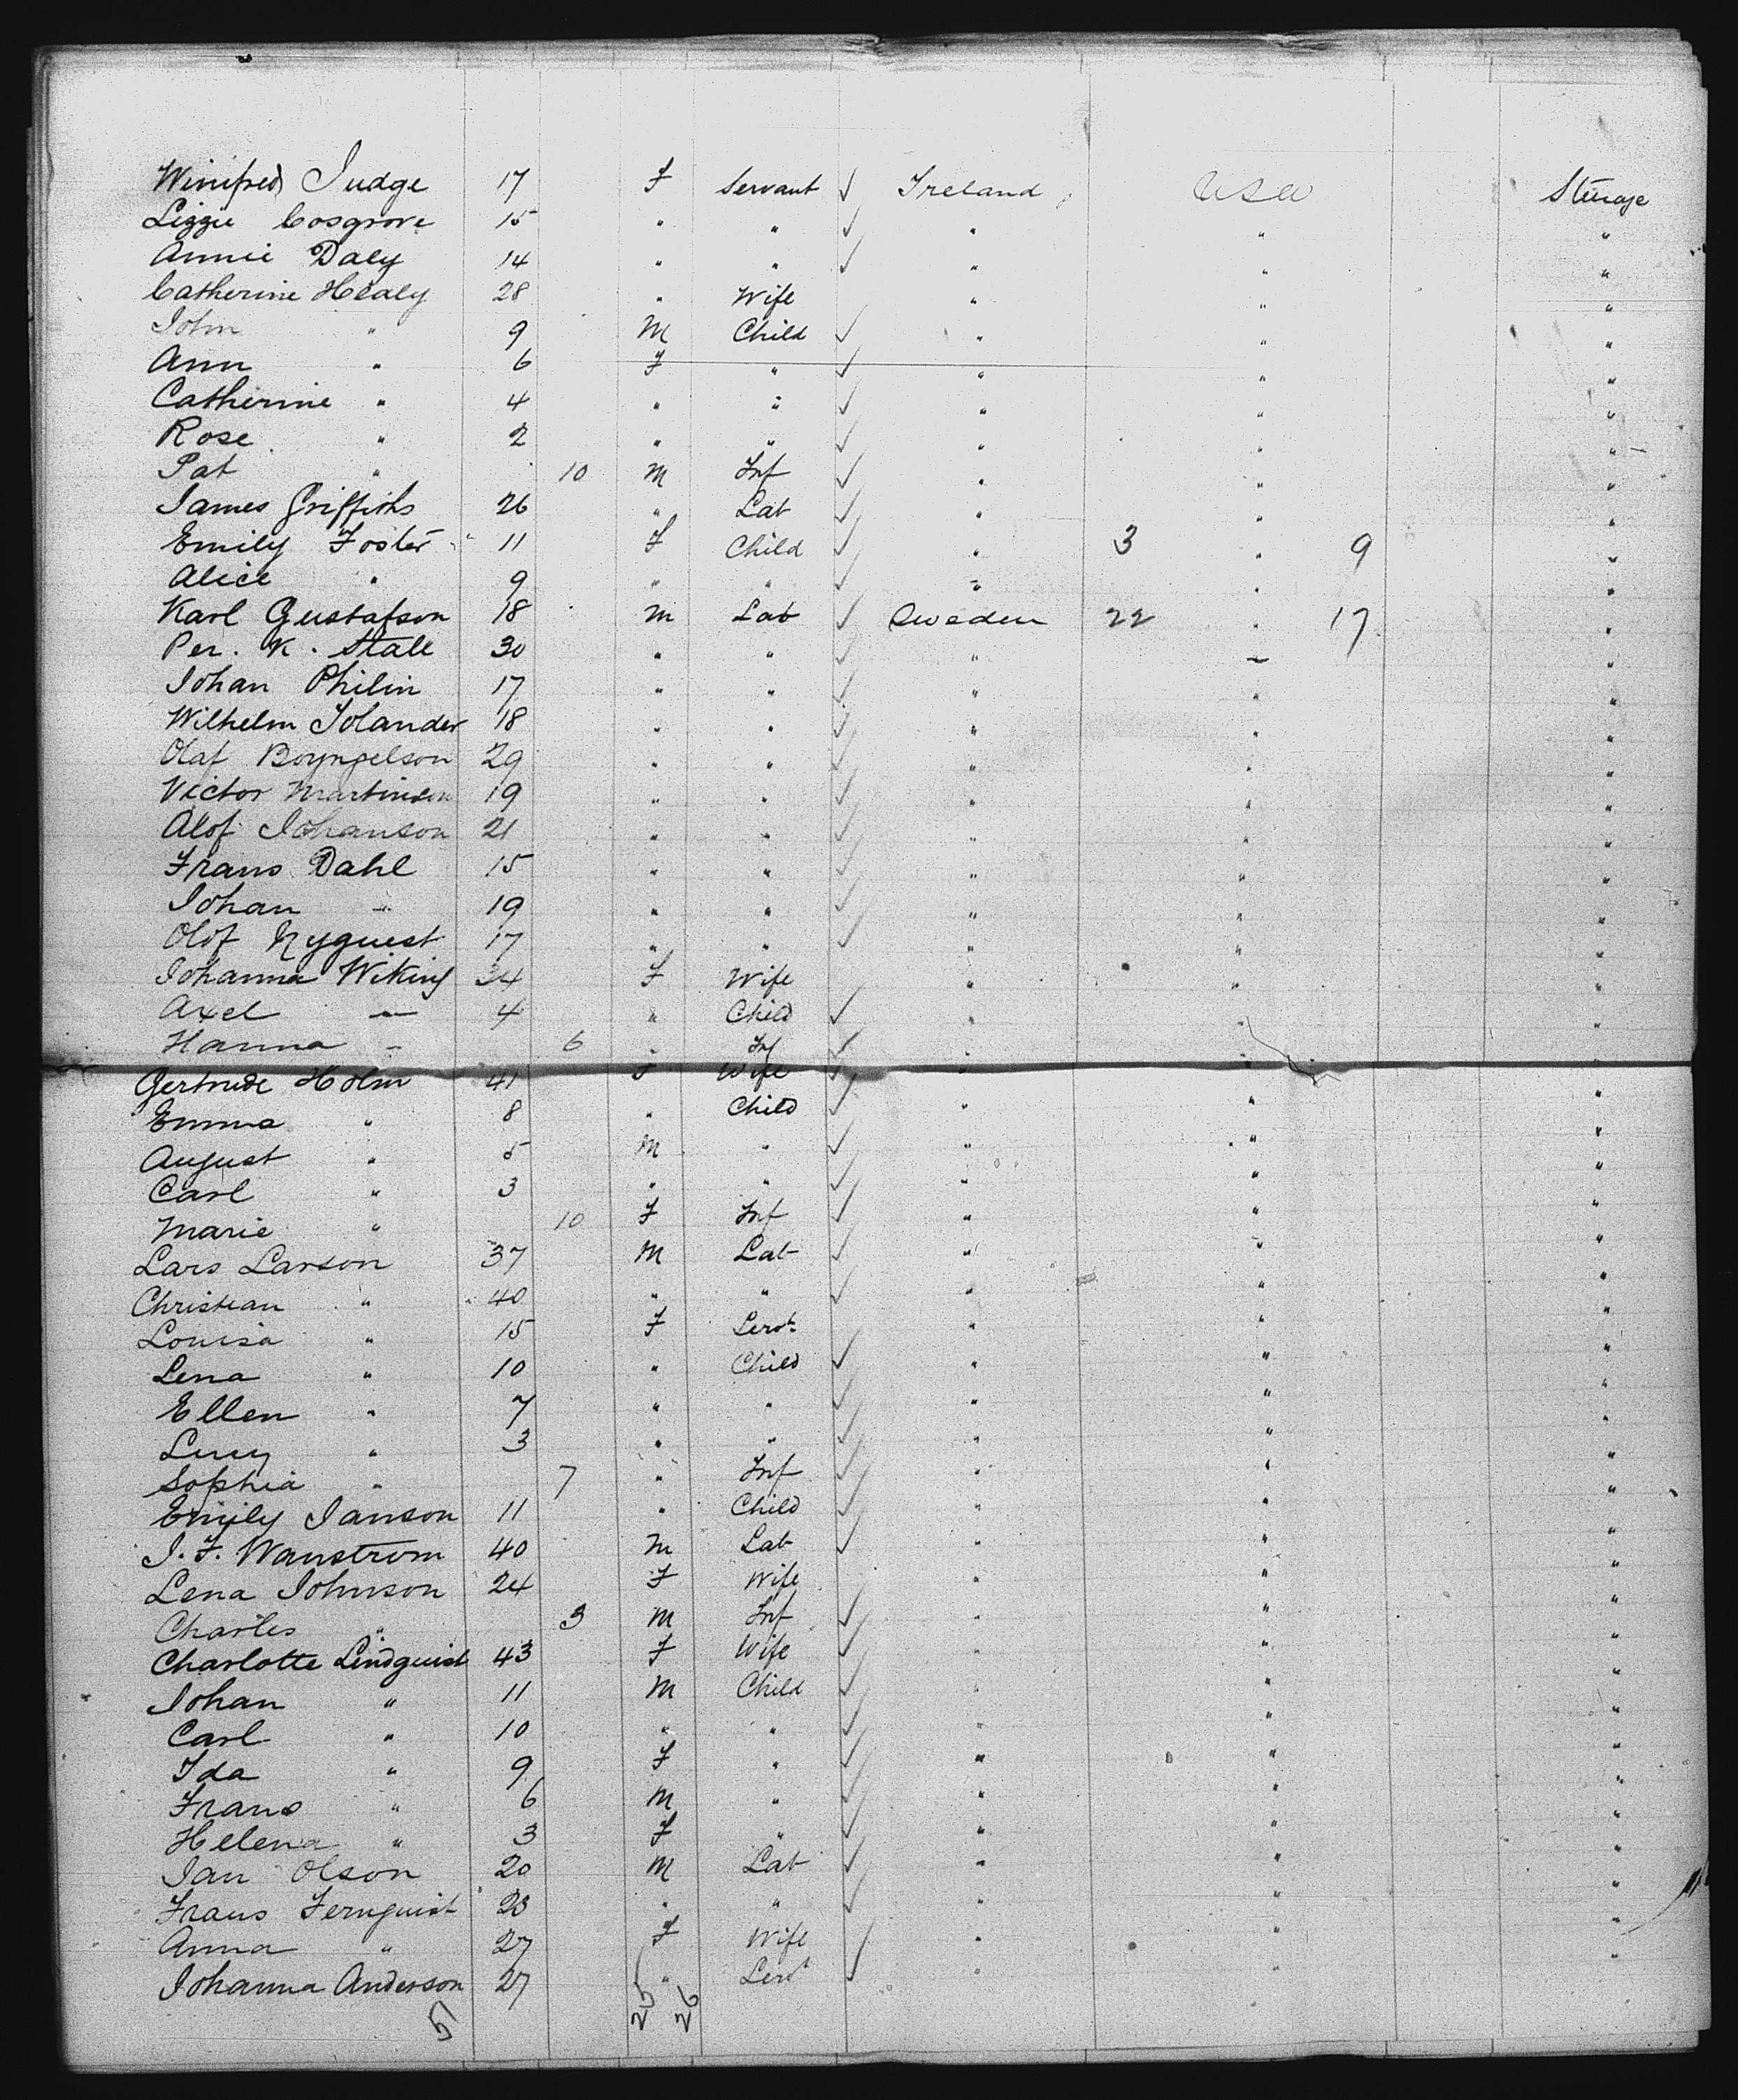 Winifred Judge 17 F Servant ✓ Ireland USA Steerage
Lizzie Cosgrove 15 " " ✓ " " "
Annie Daly 14 " " ✓ " " "
Catherine Healy 28 " Wife " " "
John " 9 M Child ✓ " " "
Ann " 6 F " ✓ " " "
Catherine " 4 " " ✓ " " "
Rose " 2 " " ✓ " " "
Pat " 10 M Inf ✓ " " "
James Griffiths 26 " Lab ✓ " " "
Emily Foster 11 F Child ✓ " 3 " 9 "
Alice " 9 " " ✓ " " "
Karl Gustafson 18 M Lab ✓ Sweden 22 " 17 "
Per. K. Stall 30 " " ✓ " " "
Johan Philin 17 " " ✓ " " "
Wilhelm Jolander 18 " " ✓ " " "
Olaf 29 " " ✓ " " "
Victor Martinson 19 " " ✓ " " "
Alof Johanson 21 " " ✓ " " "
Frans Dahl 15 " " ✓ " " "
Johan " 19 " " ✓ " " "
Olof Nyquest 17 " " ✓ " " "
Johanna Wiking 34 F Wife " " "
Axel — 4 " Child ✓ " " "
Hanna - 6 " Inf ✓ " " "
Gertrude Holm 41 F Wife ✓ " " "
Emma " 8 " Child ✓ " " "
August " 5 M " ✓ " " "
Carl " 3 " " ✓ " " "
Marie " 10 F Inf ✓ " " "
Lars Larson 37 M Lab ✓ " " "
Christian " 40 " " ✓ " " "
Louisa " 15 F Servt " " "
Lena " 10 " Child ✓ " " "
Ellen " 7 " " ✓ " " "
Lucy " 3 " " ✓ " " "
Sophia " 7 " Inf ✓ " " "
Emily Janson 11 " Child ✓ " " "
J. F. Wanstrom 40 M Lab ✓ " " "
Lena Johnson 24 F Wife " " "
Charles " 3 M Inf ✓ " " "
Charlotte Lindquist 43 F Wife ✓ " " "
Johan " 11 M Child ✓ " " "
Carl " 10 " " ✓ " " "
Ida " 9 F " ✓ " " "
Frans " 6 M " ✓ " " "
Helena " 3 F " ✓ " " "
Jan Olson 20 M Lab ✓ " " "
Frans Fernquist 23 " " ✓ " " "
Anna " 27 F Wife ✓ " " "
Johanna Anderson 27 " Servt ✓ " " "
51 25 26